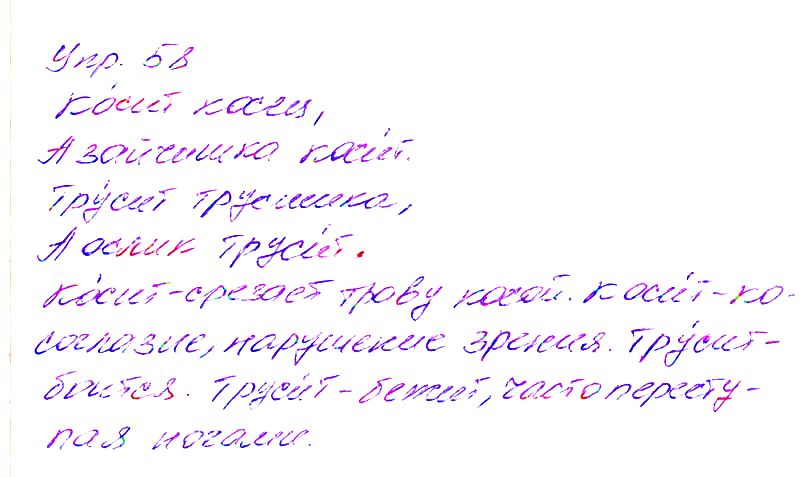 Упр. 58
Ко́сит косец,
А зайчишка коси́т.
Тру́сит трусишка,
А ослик труси́т.
Ко́сит-срезает траву косой. Коси́т-ко-
соглазие, нарушение зрения. Тру́сит-
боится. Труси́т-бежит, часто пересту-
пая ногами.